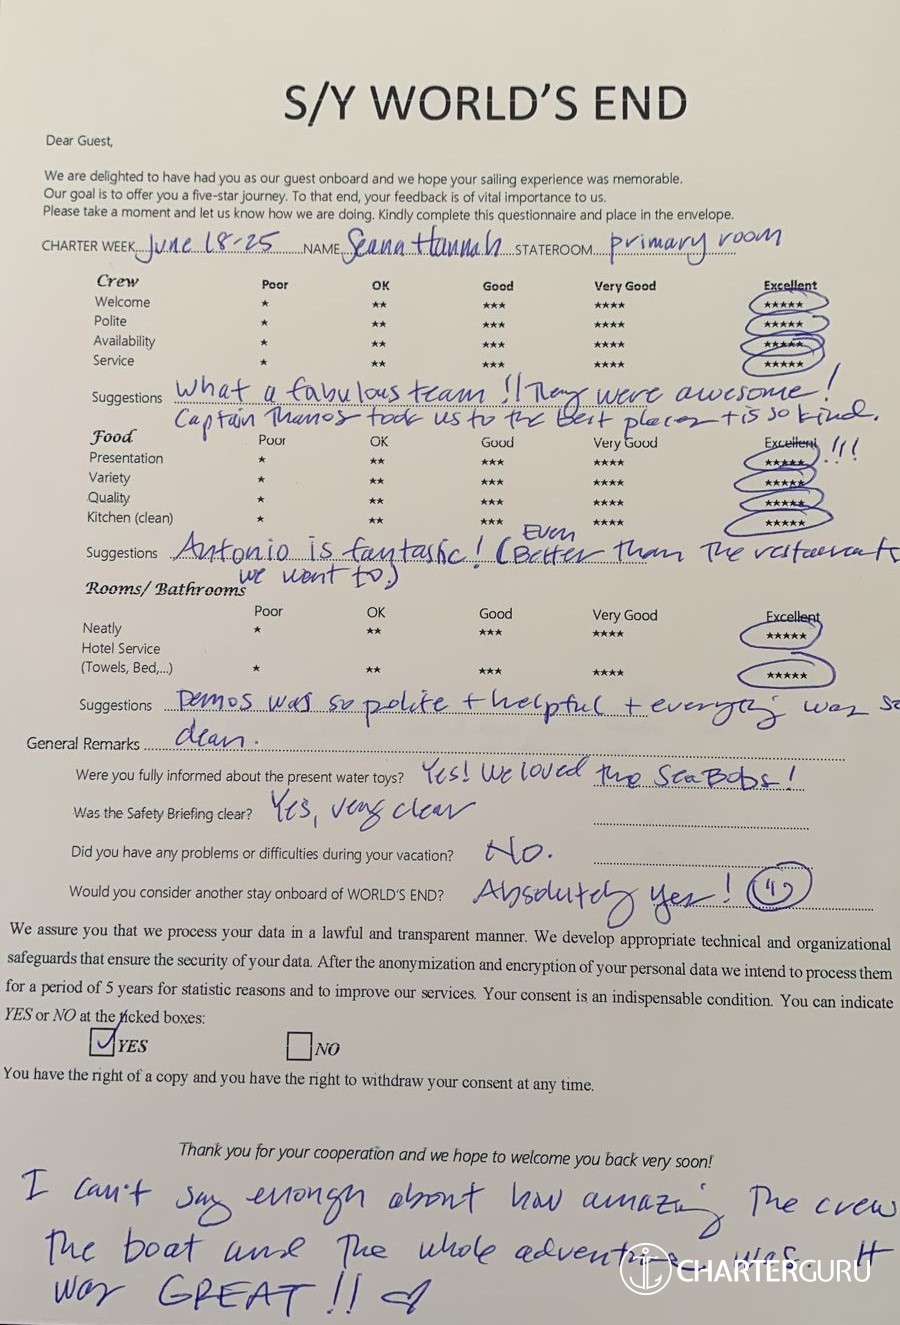 S/Y WORLD'S END
Dear Guest,
We are delighted to have had you as our guest onboard and we hope your sailing experience was memorable.
Our goal is to offer you a five-star journey. To that end, your feedback is of vital importance to us.
Please take a moment and let us know how we are doing. Kindly complete this questionnaire and place in the envelope.
CHARTER WEEK June 18-25 NAME Seana Hannah STATEROOM primary room
Crew Poor OK Good Very Good Excellent
Welcome ★ ★★ ★★★ ★★★★ ★★★★★
Polite ★ ★★ ★★★ ★★★★ ★★★★★
Availability ★ ★★ ★★★ ★★★★ ★★★★★
Service ★ ★★ ★★★ ★★★★ ★★★★★
Suggestions What a fabulous team!! They were awesome!
Captain Thanos took us to the best places + is so kind.
Food Poor OK Good Very Good Excellent !!!
Presentation ★ ★★ ★★★ ★★★★ ★★★★★
Variety ★ ★★ ★★★ ★★★★ ★★★★★
Quality ★ ★★ ★★★ ★★★★ ★★★★★
Kitchen (clean) ★ ★★ ★★★ ★★★★ ★★★★★
Even
Suggestions Antonio is fantastic! (Better than the restaurants
we went to)
Rooms/ Bathrooms
Poor OK Good Very Good Excellent
Neatly ★ ★★ ★★★ ★★★★ ★★★★★
Hotel Service
(Towels, Bed,...) ★ ★★ ★★★ ★★★★ ★★★★★
Suggestions Demos was so polite + helpful + everything was so
General Remarks clean.
Were you fully informed about the present water toys? Yes! We loved the SeaBobs!
Was the Safety Briefing clear? Yes, very clear
Did you have any problems or difficulties during your vacation? No.
Would you consider another stay onboard of WORLD'S END? Absolutely yes!
We assure you that we process your data in a lawful and transparent manner. We develop appropriate technical and organizational
safeguards that ensure the security of your data. After the anonymization and encryption of your personal data we intend to process them
for a period of 5 years for statistic reasons and to improve our services. Your consent is an indispensable condition. You can indicate
YES or NO at the ticked boxes:
YES NO
You have the right of a copy and you have the right to withdraw your consent at any time.
Thank you for your cooperation and we hope to welcome you back very soon!
I can't say enough about how amazing the crew
the boat and the whole adventure was. It
was GREAT!!
CHARTERGURU